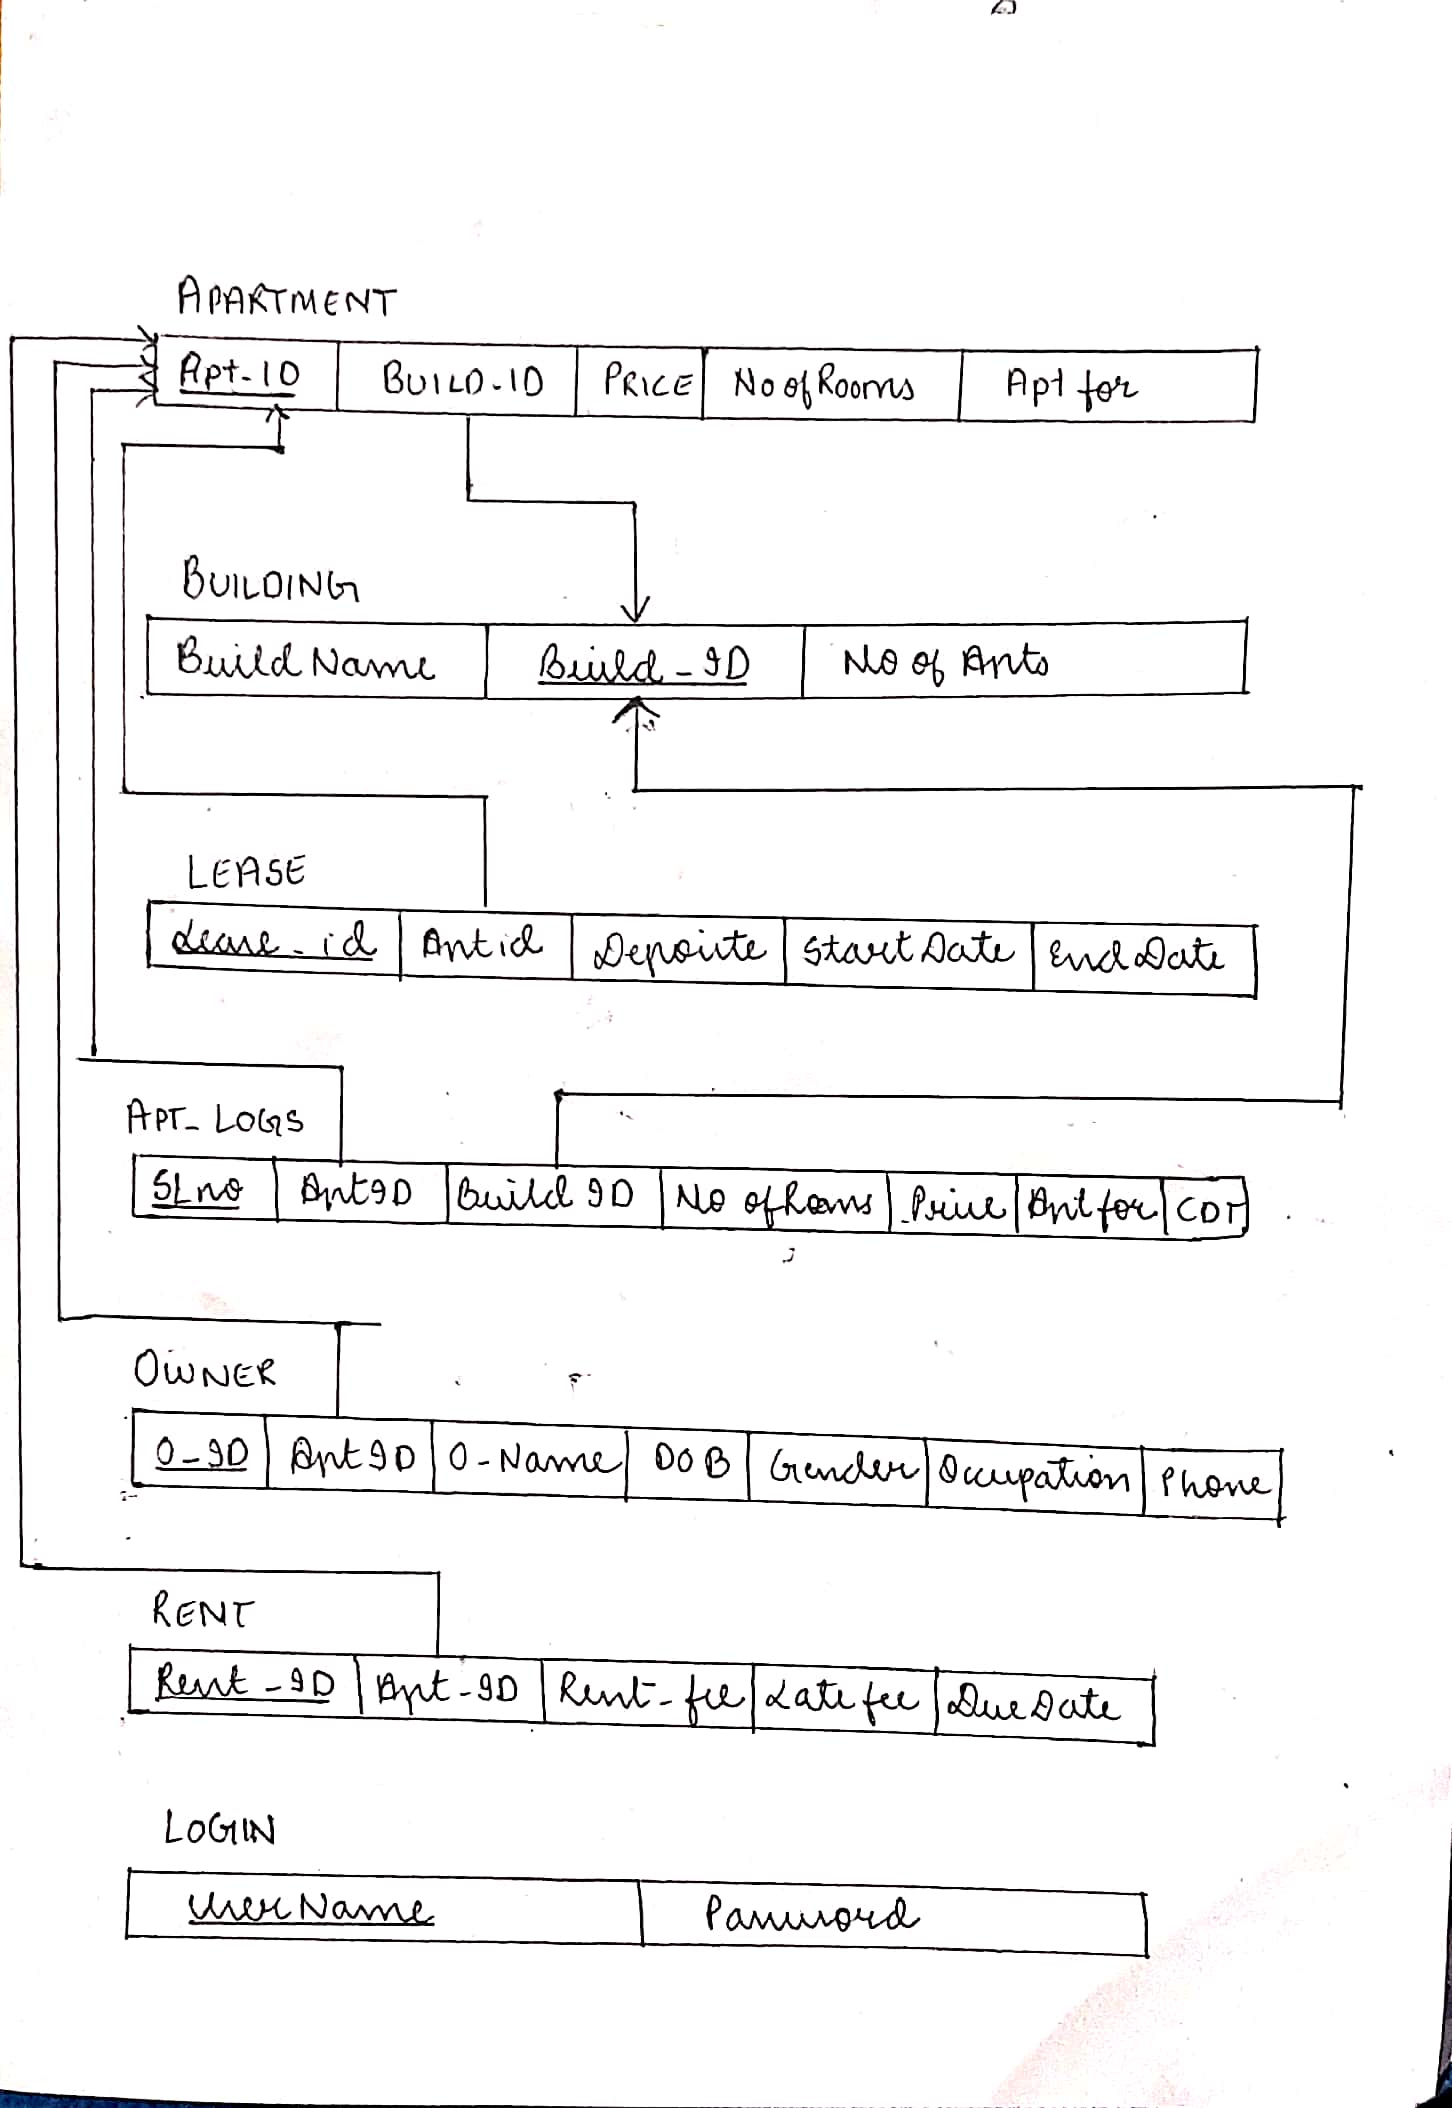 APARTMENT
Apt-ID BUILD-ID PRICE No of Rooms Apt for
BUILDING
Build Name Build-ID No of Apts
LEASE
Lease-id Apt id Deposite Start Date End Date
APT-LOGS
SLno Apt ID Build ID No of Rooms Price Apt for CDT
OWNER
O-ID Apt ID O-Name DOB Gender Occupation Phone
RENT
Rent-ID Apt-ID Rent-fee Late fee Due Date
LOGIN
User Name Password